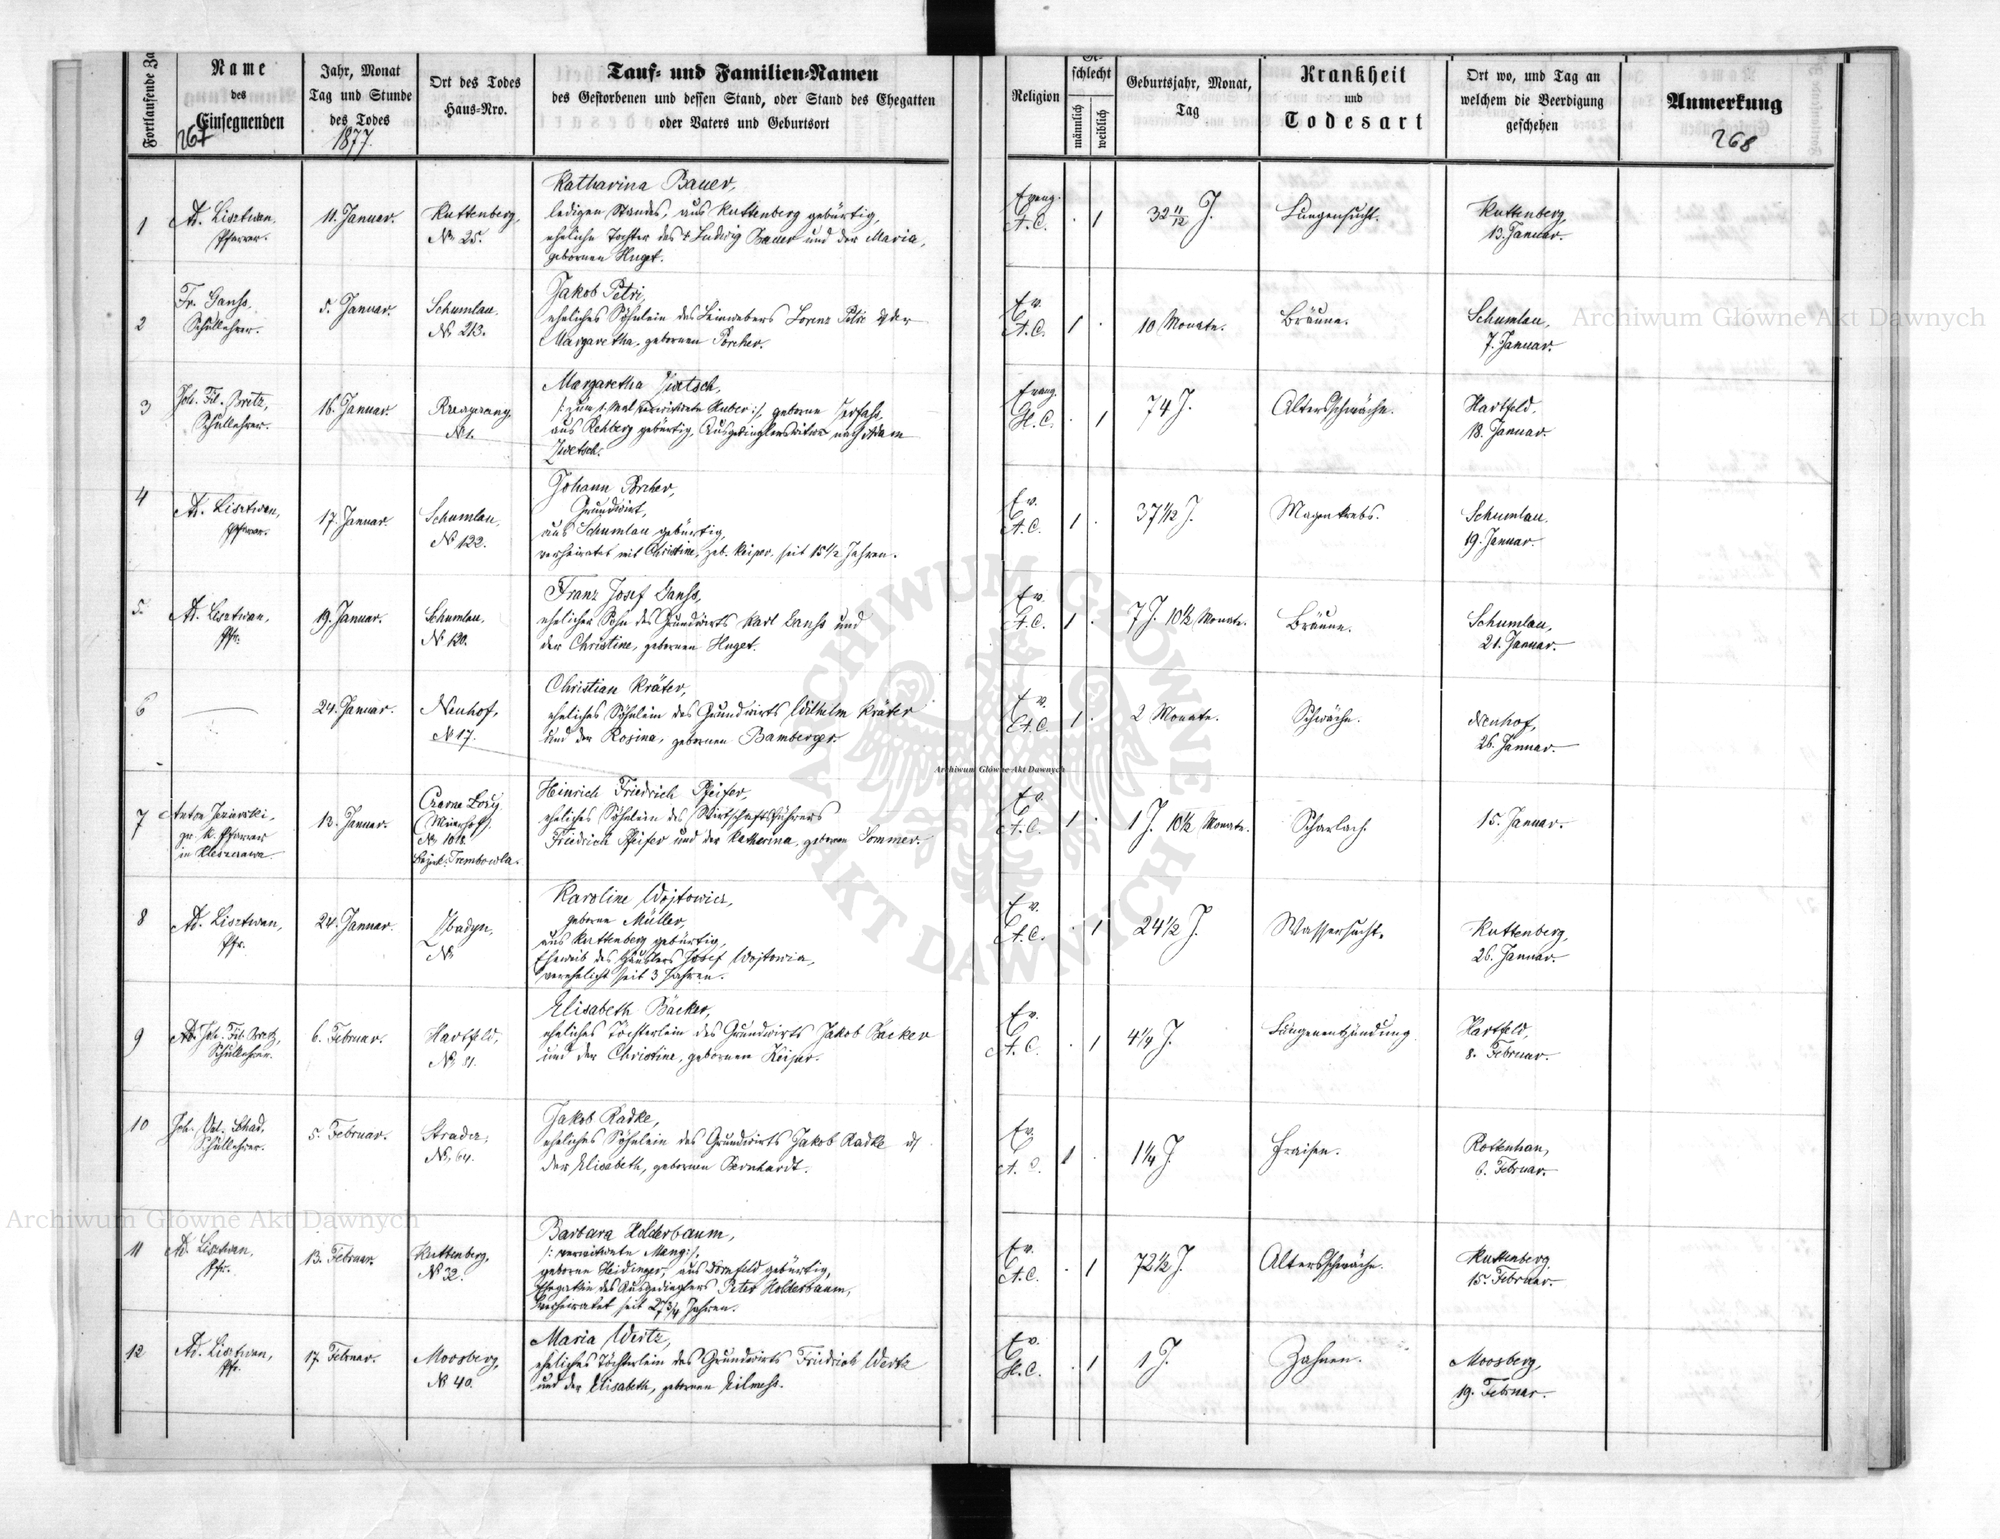 Fortlaufende Za
Name
des
Einsegnenden
267
Jahr, Monat
Tag und Stunde
des Todes
1877.
Ort des Todes
Haus-Nro.
Tauf- und Familien-Namen
des Gestorbenen und dessen Stand, oder Stand des Ehegatten
oder Vaters und Geburtsort
Religion
Ge-
schlecht
männlich
weiblich
Geburtsjahr, Monat,
Tag
Krankheit
und
Todesart
Ort wo, und Tag an
welchem die Beerdigung
geschehen
Anmerkung
268
1
Ad. Lisztwan,
Pfarrer.
11. Januar.
Kuttenberg,
No. 25.
Katharina Bauer,
ledigen Standes, aus Kuttenberg gebürtig,
eheliche Tochter des + Ludwig Bauer und der Maria,
gebornen Huget.
Evang.
A.C.
1
32 11/12 J.
Lungensucht.
Kuttenberg,
13. Januar.
2
Fr. Ganss,
Schullehrer.
5. Januar.
Schumlau.
No. 213.
Jakob Petri,
eheliches Söhnlein des Leinwebers Lorenz Petri & der
Margaretha, gebornen Porcher.
Ev.
A.C.
1
10 Monate.
Bräune.
Schumlau,
7. Januar.
3
Joh. Fil. Bretz,
Schullehrer.
16. Januar.
No 1.
Margaretha Jwetsch,
aus Rehberg gebürtig, Ausgedinglerswitwe nach Adam
Jwetsch.
Evang.
H.C.
1
74 J.
Altersschwäche.
Hartfeld,
18. Januar.
4
Ad. Lisztwan,
Pfarrer.
17. Januar.
Schumlau,
No 122.
Johann Porcher,
Grundwirt,
aus Schumlau gebürtig,
verheiratet mit Christine, geb. Keiper, seit 15 1/2 Jahren.
Ev.
A.C.
1
37 1/12 J.
Magenkrebs.
Schumlau.
19. Januar.
5.
Ad. Lisztwan,
Pfr.
19. Januar.
Schumlau.
No 130.
Franz Josef Ganss,
ehelicher Sohn des Grundwirts Karl Ganss und
der Christine, gebornen Huget.
Ev.
A.C.
1
7 J. 10 1/2 Monate.
Bräune.
Schumlau,
21. Januar.
6
24. Januar.
Neuhof,
No 17.
Christian Kräter,
eheliches Söhnlein des Grundwirts Wilhelm Kräter
und der Rosina, gebornen Bamberger.
Ev.
A.C.
1
2 Monate.
Schwäche.
Neuhof,
26. Januar.
7
gr. k. Pfarrer
13. Januar.
(Meierhof).
Bezirk: Trembowla.
Heinrich Friedrich Pfeifer,
eheliches Söhnlein des Wirtschaftsführers
Friedrich Pfeifer und der Katharina, gebornen Sommer.
Ev.
A.C.
1
1 J. 10 1/2 Monate.
Scharlach.
15. Januar.
8
Ad. Lisztwan,
Pfr.
24. Januar.
No
Karoline Wojtowicz,
geborne Müller,
aus Kuttenberg gebürtig,
Eheweib des Häuslers Josef Wojtowicz,
verehelicht seit 3 Jahren.
Ev.
A.C.
1
24 1/2 J.
Wassersucht.
Kuttenberg,
26. Januar.
9
Joh. Fil. Bretz,
Schullehrer.
6. Februar.
Hartfeld,
No 81.
Elisabeth Bäcker,
eheliches Töchterlein des Grundwirts Jakob Bäcker
und der Christine, gebornen Keiper.
Ev.
A.C.
1
4 1/4 J.
Lungenentzündung.
Hartfeld,
8. Februar.
10
Schullehrer.
5. Februar.
No. 64.
Jakob Radke,
eheliches Söhnlein des Grundwirts Jakob Radke u/
der Elisabeth, gebornen Bernhardt.
Ev.
A.C.
1
1 1/4 J.
Fraisen.
Rottenhan,
6. Februar.
11
Ad. Lisztwan,
Pfr.
13. Februar.
Kuttenberg,
No 32.
Barbara Holderbaum,
/: verwitwete Mang:/,
geborne Heidinger, aus Dornfeld gebürtig,
Ehegattin des Ausgedinglers Peter Holderbaum,
verheiratet seit 27 3/4 Jahren.
Ev.
A.C.
1
72 1/2 J.
Altersschwäche.
Kuttenberg,
15. Februar.
12
Ad. Lisztwan,
Pfr.
17. Februar.
Moosberg,
No 40.
Maria Wertz,
eheliches Töchterlein des Grundwirts Friedrich Wertz
und der Elisabeth, gebornen Eilmess.
Ev.
H.C.
1
1 J.
Zahnen.
Moosberg,
19. Februar.
Archiwum Główne Akt Dawnych
Archiwum Główne Akt Dawnych
Archiwum Główne Akt Dawnych
ARCHIWUM GŁÓWNE AKT DAWNYCH